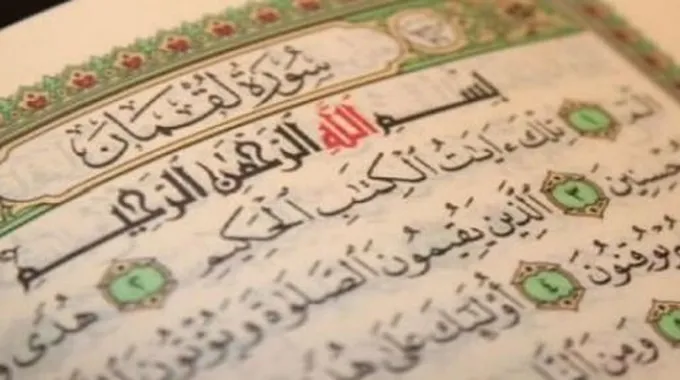 سُورَةُ لُقْمَانَ
بِسْمِ اللَّهِ الرَّحْمَٰنِ الرَّحِيمِ
الٓمٓ ١ تِلْكَ ءَايَٰتُ ٱلْكِتَٰبِ ٱلْحَكِيمِ ٢ هُدًى
ٱلَّذِينَ يُقِيمُونَ ٱلصَّلَوٰةَ وَيُؤْتُونَ ٣
يُوقِنُونَ ٤ أُو۟لَٰٓئِكَ عَلَىٰ هُدًى
وَمِنَ